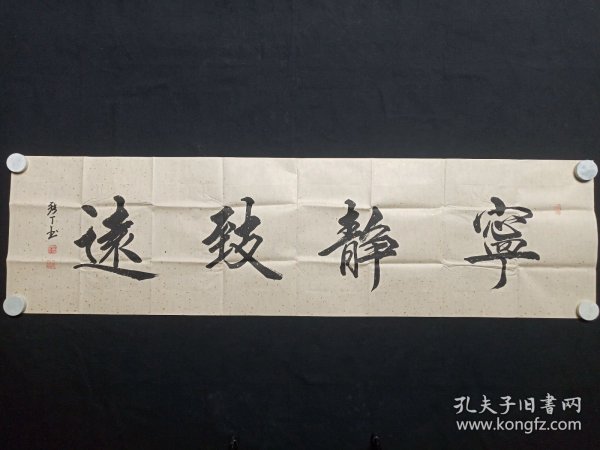 寧靜致遠
孔夫子旧書网
www.kongfz.com